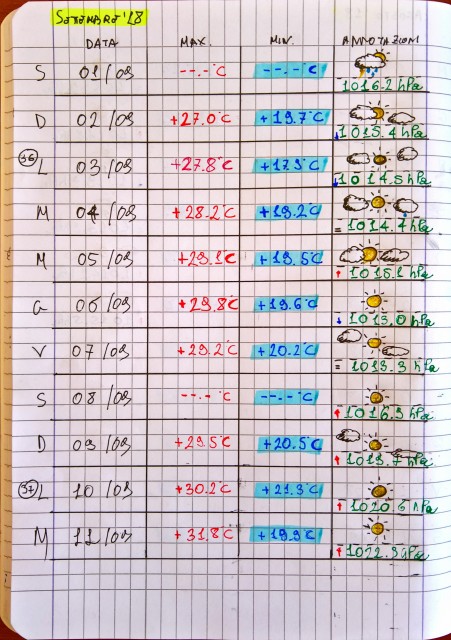 SETTEMBRE '18
DATA MAX. MIN. ANNOTAZIONI
S 01/09 --.-°C --.-°C 1016.2 hPa
D 02/09 +27.0°C +19.7°C ↓1015.4 hPa
36 L 03/09 +27.8°C +17.9°C ↓1014.5 hPa
M 04/09 +28.2°C +19.2°C =1014.4 hPa
M 05/09 +29.1°C +19.5°C ↑1015.1 hPa
G 06/09 +29.8°C +19.6°C ↓ hPa
V 07/09 +29.2°C +20.2°C = hPa
S 08/09 --.-°C --.-°C ↑ hPa
D 09/09 +29.5°C +20.5°C ↑1019.7 hPa
37 L 10/09 +30.2°C +21.3°C ↑1020.6 hPa
M 11/09 +31.8°C +19.9°C ↑1022.9 hPa